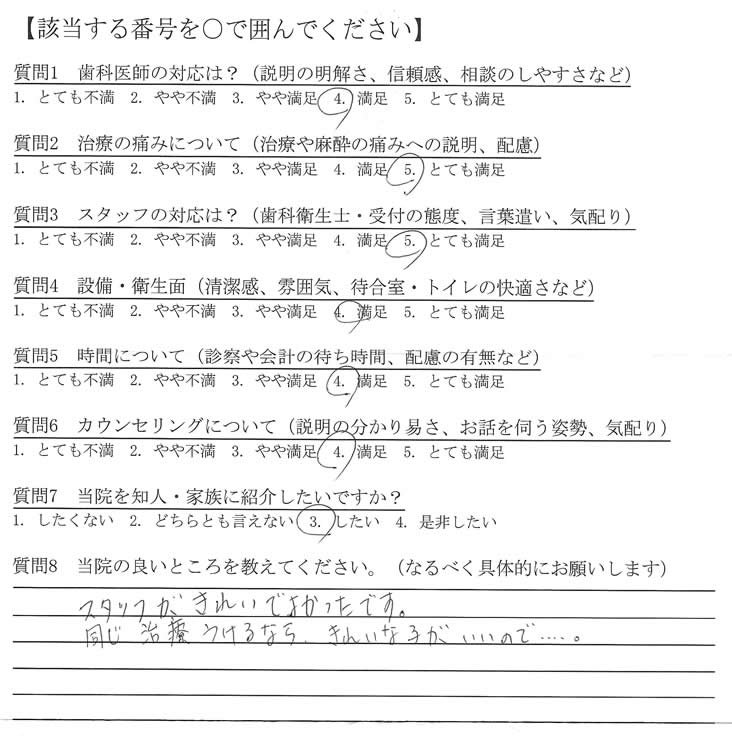 【該当する番号を〇で囲んでください】
質問1 歯科医師の対応は？（説明の明解さ、信頼感、相談のしやすさなど）
1. とても不満 2. やや不満 3. やや満足 4. 満足 5. とても満足
質問2 治療の痛みについて（治療や麻酔の痛みへの説明、配慮）
1. とても不満 2. やや不満 3. やや満足 4. 満足 5. とても満足
質問3 スタッフの対応は？（歯科衛生士・受付の態度、言葉遣い、気配り）
1. とても不満 2. やや不満 3. やや満足 4. 満足 5. とても満足
質問4 設備・衛生面（清潔感、雰囲気、待合室・トイレの快適さなど）
1. とても不満 2. やや不満 3. やや満足 4. 満足 5. とても満足
質問5 時間について（診察や会計の待ち時間、配慮の有無など）
1. とても不満 2. やや不満 3. やや満足 4. 満足 5. とても満足
質問6 カウンセリングについて（説明の分かり易さ、お話を伺う姿勢、気配り）
1. とても不満 2. やや不満 3. やや満足 4. 満足 5. とても満足
質問7 当院を知人・家族に紹介したいですか？
1. したくない 2. どちらとも言えない 3. したい 4. 是非したい
質問8 当院の良いところを教えてください。（なるべく具体的にお願いします）
スタッフがきれいでよかったです。
同じ治療うけるなら、きれいな子がいいので……。